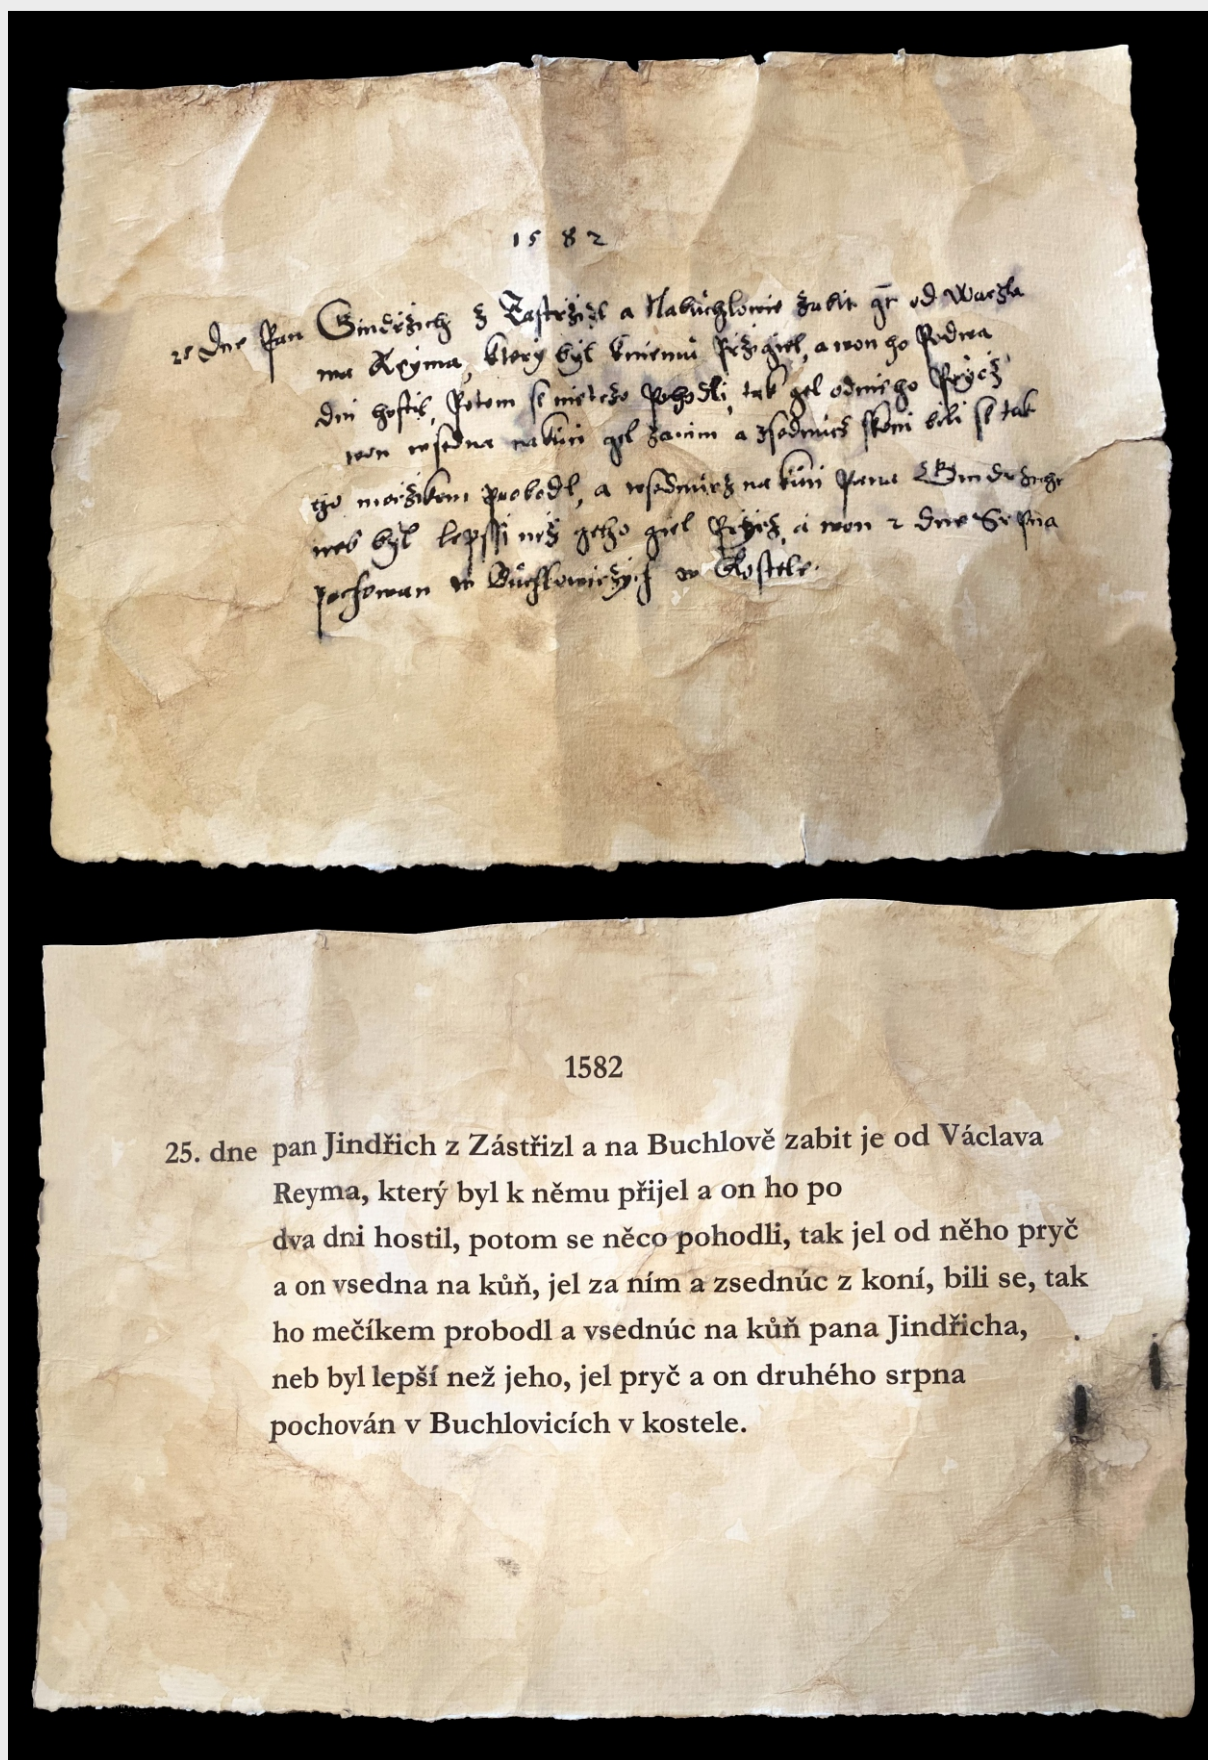 1582
25 dne Pan Gindrzich z Zastrzizl a Nabuchlowie zabit gt od Waczla
wa Reyma, ktery byl kniemu Przigiel, a won ho Podwa
dni hostil, Potom se nieteżo Pohodli, tak gel odnieho Prycz
won wsedna na kuni gel zanim a zsednucz skoni bili se tak
ho meczikem probodl, a wsednucz na kuni Pana Gindrzicha
neb byl lepssi niz geho giel Prycz, a won 2 dne Srpna
pochowan w Buchlowiczych w Kostele.
1582
25. dne pan Jindřich z Zástřizl a na Buchlově zabit je od Václava
Reyma, který byl k němu přijel a on ho po
dva dni hostil, potom se něco pohodli, tak jel od něho pryč
a on vsedna na kůň, jel za ním a zsednúc z koní, bili se, tak
ho mečíkem probodl a vsednúc na kůň pana Jindřicha,
neb byl lepší než jeho, jel pryč a on druhého srpna
pochován v Buchlovicích v kostele.